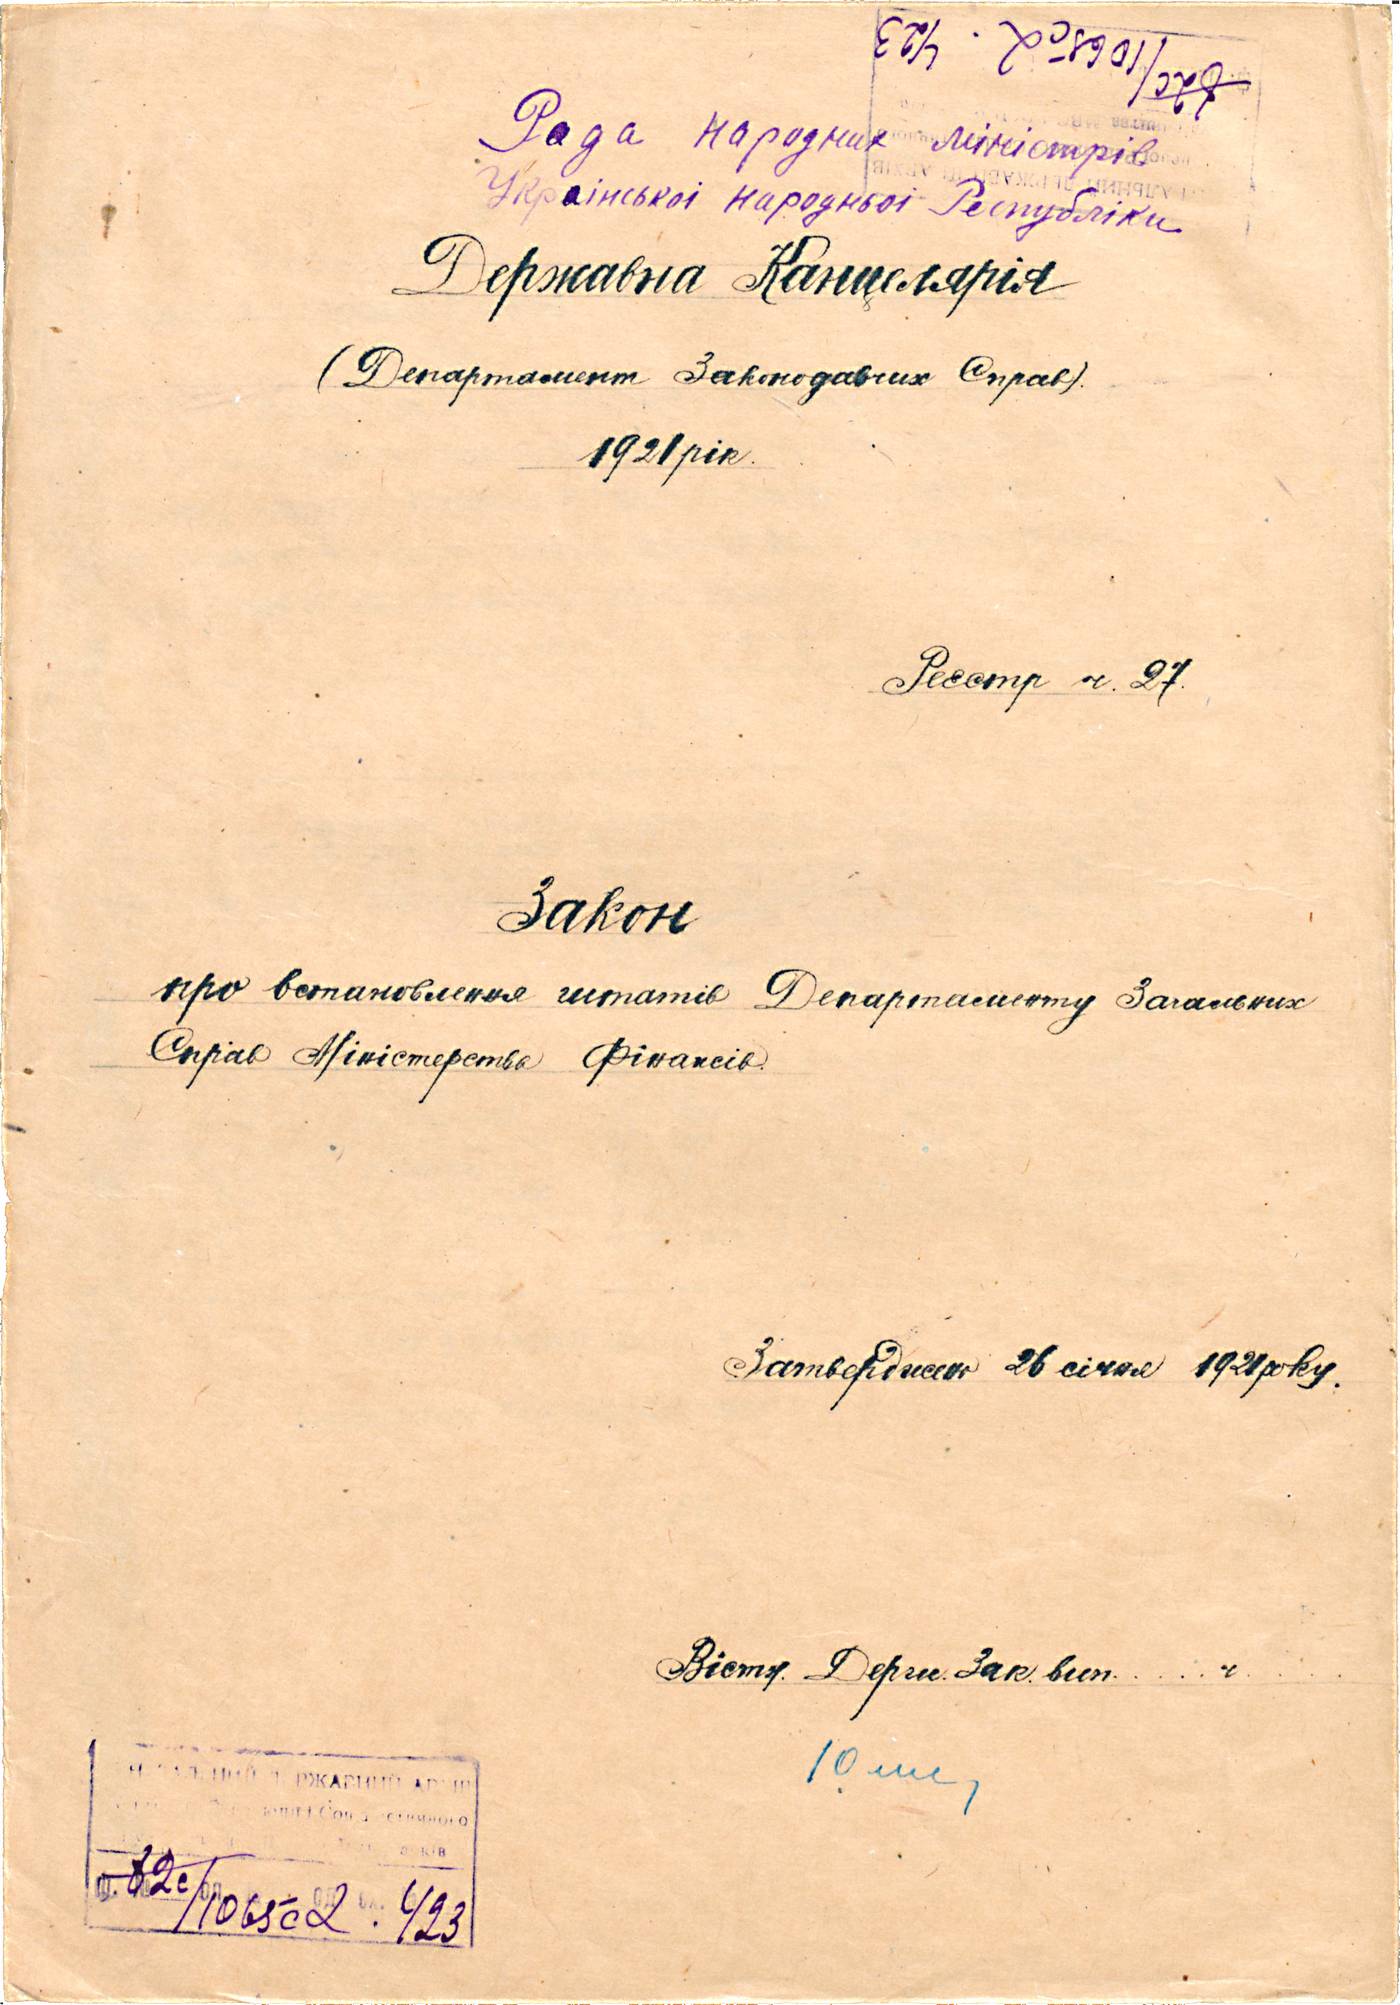 Рада народних міністрів
Української народньої Республіки
Державна Канцелярія
(Департамент Законодавчих Справ).
1921 рік.
Реєстр ч. 27.
Закон
про встановлення штатів Департаменту Загальних
Справ Міністерства Фінансів.
Затверджено 26 січня 1921 року.
Вістн. Держ. Зак. вип. . . . . ч. . . . .
10
ДЕРЖАВНИЙ АРХІВ
1065с 2 . 423